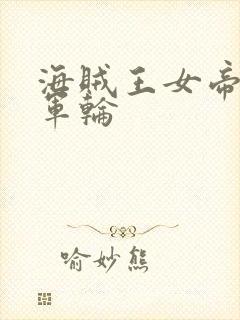 海賊王女帝
軍輪
喻妙熊